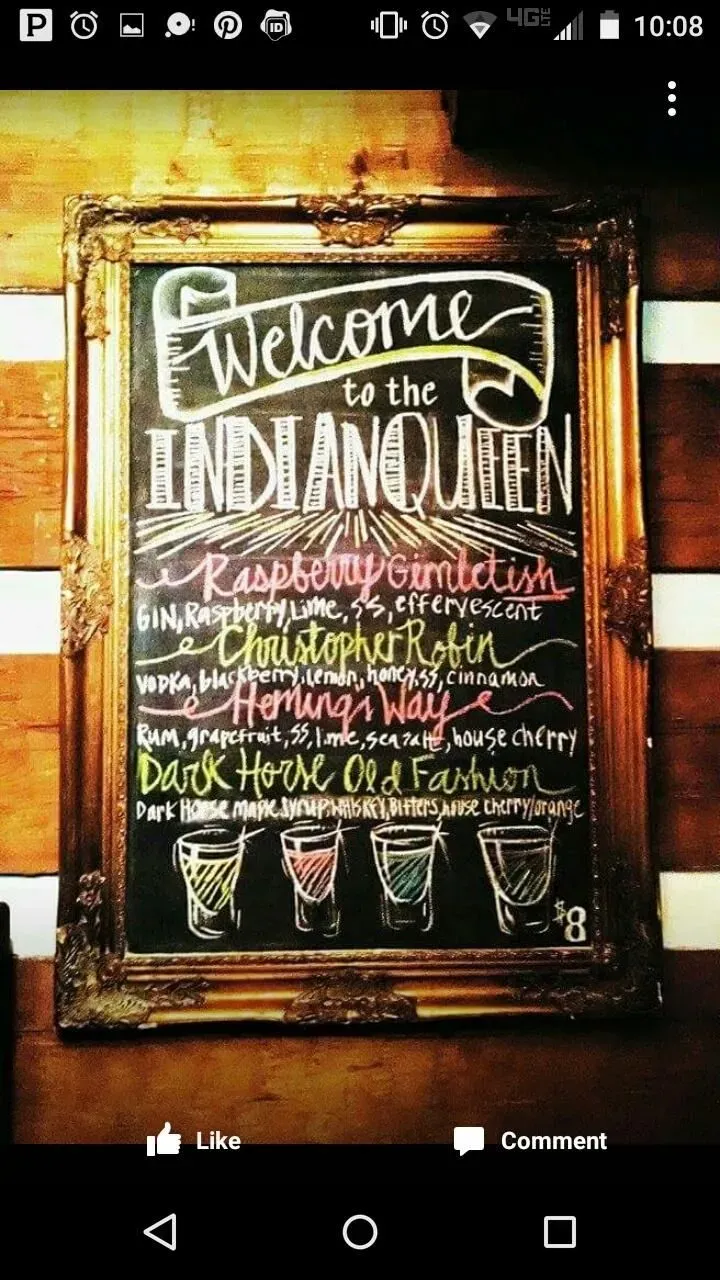 P
ID
4G LTE
10:08
Welcome
to the
INDIAN QUEEN
Raspberry Gimletish
GIN, Raspberry, Lime, SS, effervescent
Christopher Robin
VODKA, blackberry, lemon, honey, SS, cinnamon
Hemings Way
RUM, grapefruit, SS, lime, sea salt, house cherry
Dark Horse Old Fashion
Dark Horse maple syrup, WHISKEY, Bitters, house cherry/orange
$8
Like
Comment